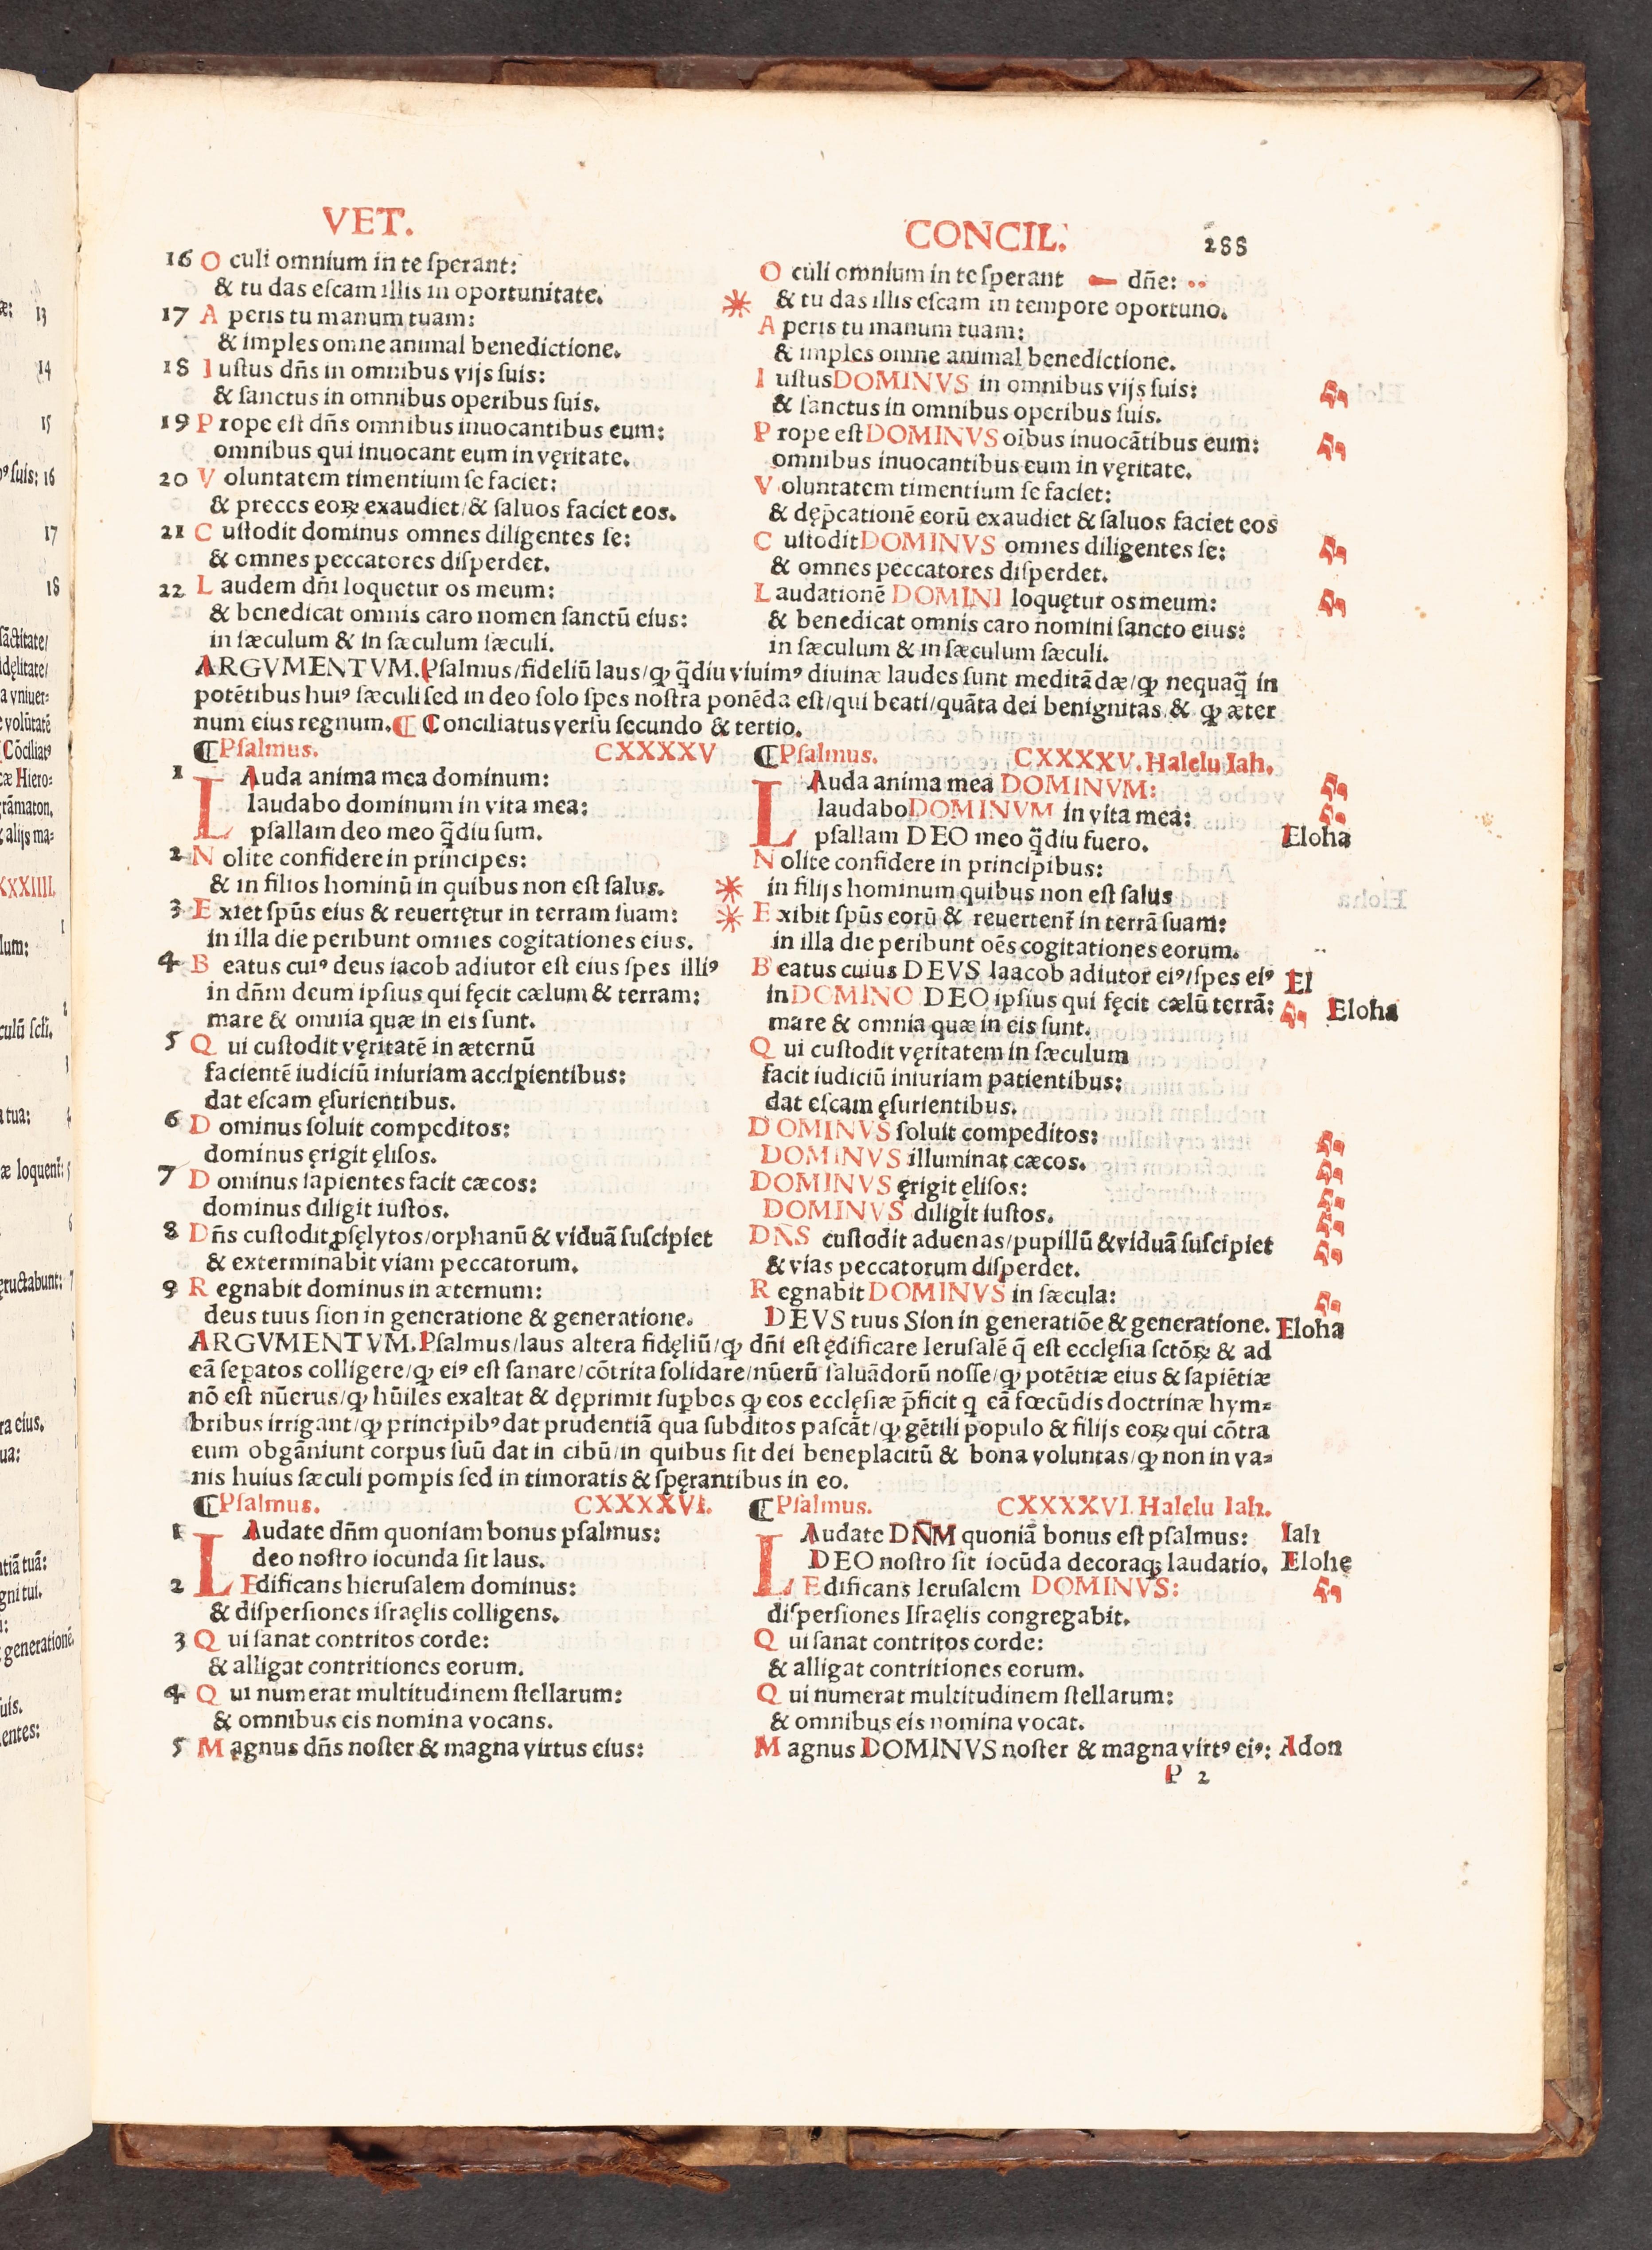 VET.
16 O culi omnium in te ſperant:
& tu das eſcam illis in oportunitate.
17 A peris tu manum tuam:
& imples omne animal benedictione.
18 I uſtus dn̄s in omnibus vijs ſuis:
& ſanctus in omnibus operibus ſuis.
19 P rope eſt dn̄s omnibus inuocantibus eum:
omnibus qui inuocant eum in vęritate.
20 V oluntatem timentium ſe faciet:
& preces eoꝝ exaudiet/& ſaluos faciet eos.
21 C uſtodit dominus omnes diligentes ſe:
& omnes peccatores diſperdet.
22 L audem dn̄i loquetur os meum:
& benedicat omnis caro nomen ſanctū eius:
in ſæculum & in ſæculum ſæculi.
CONCIL. 288
O culi omnium in te ſperant dn̄e:
& tu das illis eſcam in tempore oportuno.
A peris tu manum tuam:
& imples omne animal benedictione.
I uſtus DOMINVS in omnibus vijs ſuis:
& ſanctus in omnibus operibus ſuis.
P rope eſt DOMINVS oībus inuocātibus eum:
omnibus inuocantibus eum in vęritate.
V oluntatem timentium ſe faciet:
& dęp̄cationē eorū exaudiet & ſaluos faciet eos
C uſtodit DOMINVS omnes diligentes ſe:
& omnes peccatores diſperdet.
L audationē DOMINI loquętur os meum:
& benedicat omnis caro nomini ſancto eius:
in ſæculum & in ſæculum ſæculi.
ARGVMENTVM. Pſalmus/fideliū laus/ꝙ q̄diu viuimꝰ diuinæ laudes ſunt meditādæ/ꝙ nequaq̄ in
potētibus huiꝰ ſæculi ſed in deo ſolo ſpes noſtra ponēda eſt/qui beati/quāta dei benignitas & ꝙ æter
num eius regnum. ¶ Conciliatus verſu ſecundo & tertio.
¶ Pſalmus. CXXXXV
1 LAuda anima mea dominum:
laudabo dominum in vita mea:
pſallam deo meo q̄diu ſum.
2 N olite confidere in principes:
& in filios hominū in quibus non eſt ſalus.
3 E xiet ſpūs eius & reuertętur in terram ſuam:
in illa die peribunt omnes cogitationes eius.
4 B eatus cuiꝰ deus iacob adiutor eſt eius ſpes illiꝰ
in dn̄m deum ipſius qui fęcit cælum & terram:
mare & omnia quæ in eis ſunt.
5 Q ui cuſtodit vęritatē in æternū
facientē iudiciū iniuriam accipientibus:
dat eſcam ęſurientibus.
6 D ominus ſoluit compeditos:
dominus ęrigit ęliſos.
7 D ominus ſapientes facit cæcos:
dominus diligit iuſtos.
8 Dn̄s cuſtodit ꝓſęlytos/orphanū & viduā ſuſcipiet
& exterminabit viam peccatorum.
9 R egnabit dominus in æternum:
deus tuus ſion in generatione & generatione.
¶ Pſalmus. CXXXXV. Halelu Iah.
LAuda anima mea DOMINVM:
laudabo DOMINVM in vita mea:
pſallam DEO meo q̄diu fuero. Eloha
N olite confidere in principibus:
in filijs hominum quibus non eſt ſalus
E xibit ſpūs eorū & reuertent̄ in terrā ſuam:
in illa die peribunt oēs cogitationes eorum.
B eatus cuius DEVS Iaacob adiutor eiꝰ/ſpes eiꝰ El
in DOMINO DEO ipſius qui fęcit cælū terrā: Eloha
mare & omnia quæ in eis ſunt.
Q ui cuſtodit vęritatem in ſæculum
facit iudiciū iniuriam patientibus:
dat eſcam ęſurientibus.
DOMINVS ſoluit compeditos:
DOMINVS illuminat cæcos.
DOMINVS ęrigit eliſos:
DOMINVS diligit iuſtos.
DN̄S cuſtodit aduenas/pupillū & viduā ſuſcipiet
& vias peccatorum diſperdet.
R egnabit DOMINVS in ſæcula:
DEVS tuus Sion in generatiōe & generatione. Eloha
ARGVMENTVM. Pſalmus/laus altera fidęliū/ꝙ dn̄i eſt ędificare Ieruſalē q̄ eſt eccleſia ſctōꝝ & ad
eā ſepatos colligere/ꝙ eiꝰ eſt ſanare/cōtrita ſolidare/nūerū ſaluādorū noſſe/ꝙ potētiæ eius & ſapiētiæ
nō eſt nūerus/ꝙ hūiles exaltat & dęprimit ſuꝑbos ꝙ eos eccleſiæ p̄ficit q eā fœcūdis doctrinæ hym⸗
bribus irrigant/ꝙ principibꝰ dat prudentiā qua ſubditos paſcāt/ꝙ gētili populo & filijs eoꝝ qui cōtra
eum obgāniunt corpus ſuū dat in cibū/in quibus ſit dei beneplacitū & bona voluntas/ꝙ non in va⸗
nis huius ſæculi pompis ſed in timoratis & ſpęrantibus in eo.
¶ Pſalmus. CXXXXVI.
1 LAudate dn̄m quoniam bonus pſalmus:
deo noſtro iocunda ſit laus.
2 Edificans hieruſalem dominus:
& diſperſiones iſraęlis colligens.
3 Q ui ſanat contritos corde:
& alligat contritiones eorum.
4 Q ui numerat multitudinem ſtellarum:
& omnibus eis nomina vocans.
5 M agnus dn̄s noſter & magna virtus eius:
¶ Pſalmus. CXXXXVI. Halelu Iah.
LAudate DN̄M quoniā bonus eſt pſalmus: Iah
DEO noſtro ſit iocūda decoraqꝫ laudatio. Elohe
Edificans Ieruſalem DOMINVS:
diſperſiones Iſraęlis congregabit.
Q ui ſanat contritos corde:
& alligat contritiones eorum.
Q ui numerat multitudinem ſtellarum:
& omnibus eis nomina vocat.
M agnus DOMINVS noſter & magna virtꝰ eiꝰ: Adon
P 2